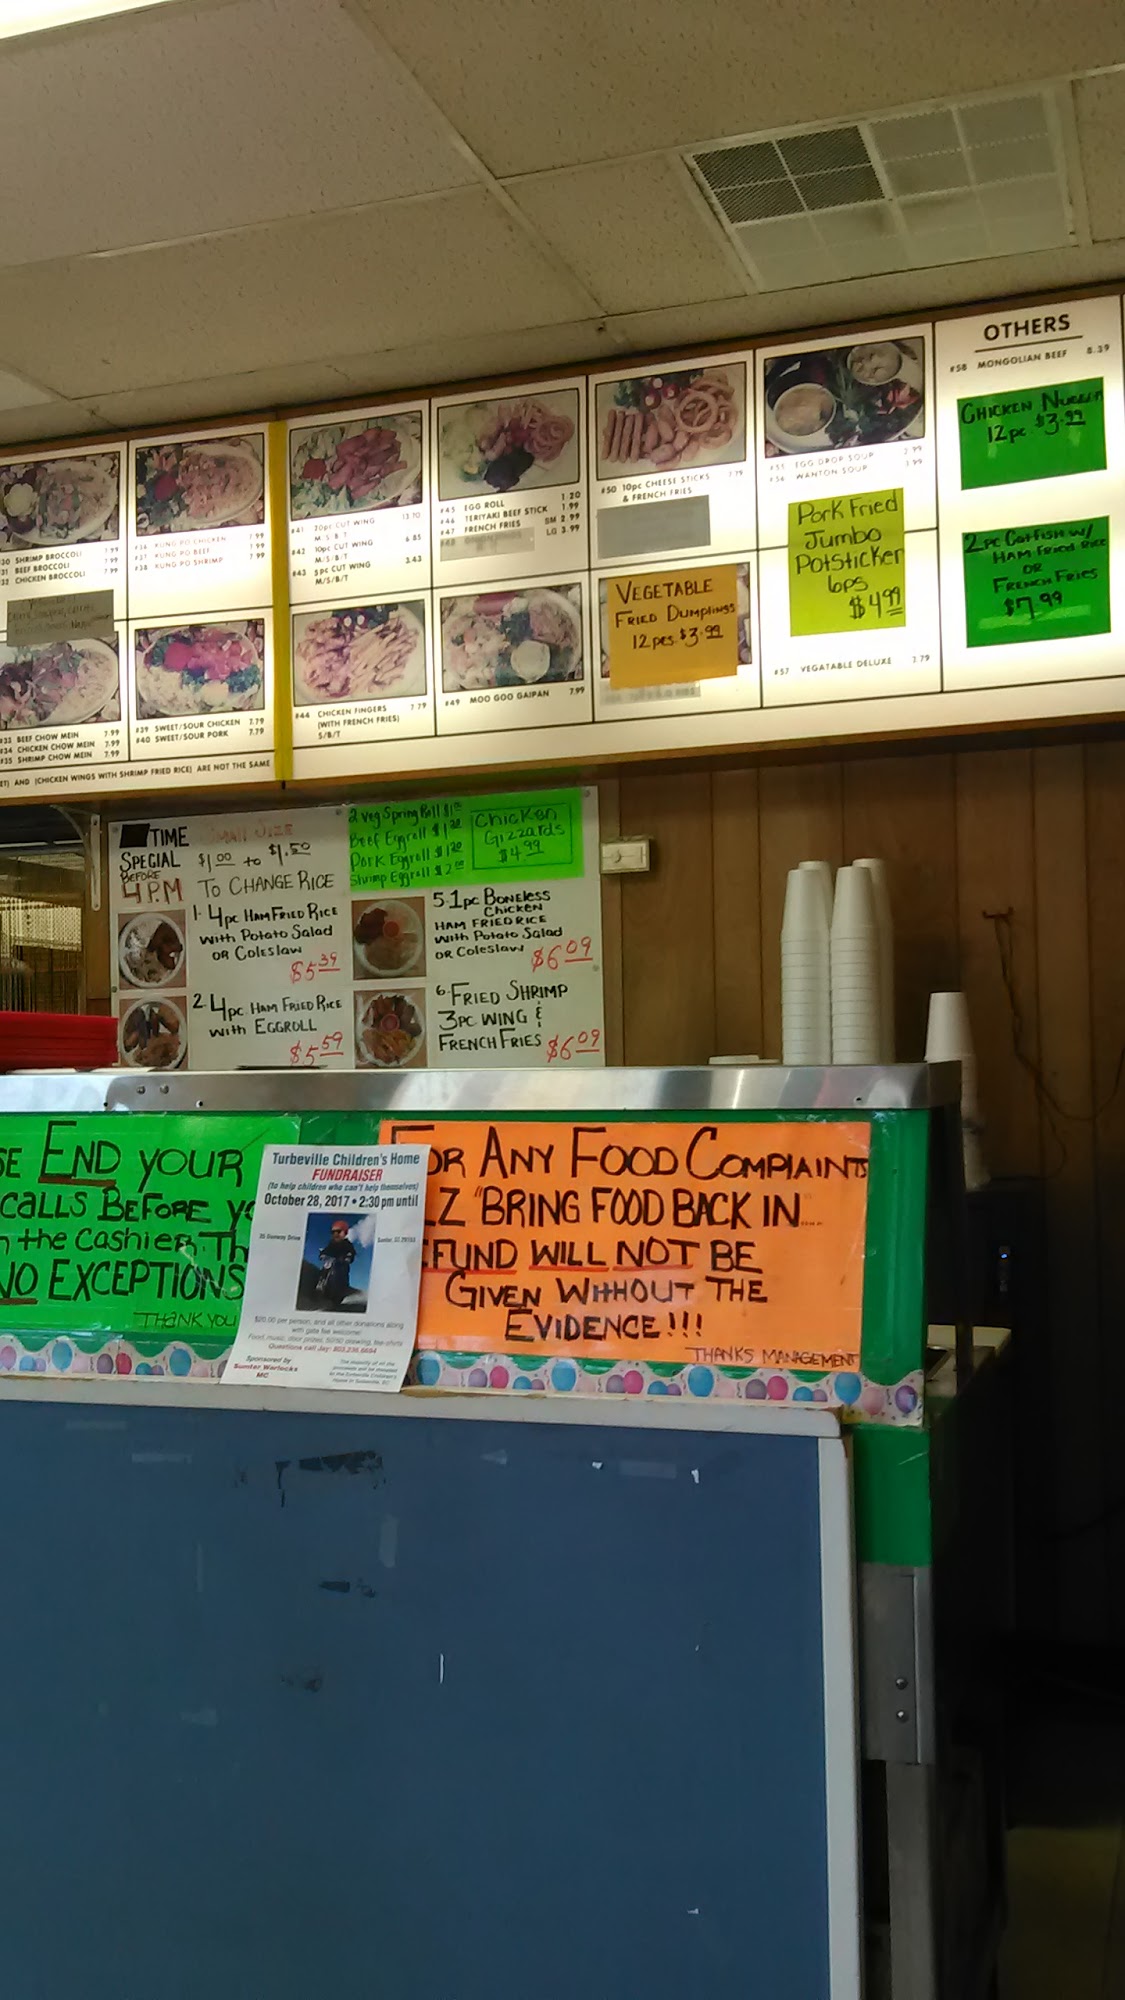 OTHERS
#58 MONGOLIAN BEEF 8.39
CHICKEN NUGGETS
12pc $3.99
2pc Catfish w/
HAM Fried Rice
OR
French Fries
$7.99
#55 EGG DROP SOUP 2.99
#56 WANTON SOUP 3.99
Pork Fried
Jumbo
PotSticker
6ps
$4.99
#57 VEGATABLE DELUXE 7.79
#50 10pc CHEESE STICKS 7.79
& FRENCH FRIES
VEGETABLE
FRIED DUMPLINGS
12 pcs $3.99
#45 EGG ROLL 1.20
#46 TERIYAKI BEEF STICK 1.99
#47 FRENCH FRIES SM 2.99
LG 3.99
#49 MOO GOO GAIPAN 7.99
#41 20pc CUT WING 13.70
M/S/B/T
#42 10pc CUT WING 6.85
M/S/B/T
#43 5pc CUT WING 3.43
M/S/B/T
#44 CHICKEN FINGERS 7.79
(WITH FRENCH FRIES)
S/B/T
#36 KUNG PO CHICKEN 7.99
#37 KUNG PO BEEF 7.99
#38 KUNG PO SHRIMP 7.99
#39 SWEET/SOUR CHICKEN 7.79
#40 SWEET/SOUR PORK 7.79
#30 SHRIMP BROCCOLI 7.99
#31 BEEF BROCCOLI 7.99
#32 CHICKEN BROCCOLI 7.99
#33 BEEF CHOW MEIN 7.99
#34 CHICKEN CHOW MEIN 7.99
#35 SHRIMP CHOW MEIN 7.99
ET) AND (CHICKEN WINGS WITH SHRIMP FRIED RICE) ARE NOT THE SAME
TIME
SPECIAL
BEFORE
4 P.M
SMALL SIZE
$1.00 to $1.50
TO CHANGE RICE
2 Veg Spring Roll $1
Beef Eggroll $1.20
Pork Eggroll $1.20
Shrimp Eggroll $2.00
Chicken
Gizzards
$4.99
1. 4pc HAM FRIED RICE
With Potato Salad
OR Coleslaw
$5.39
2. 4pc HAM FRIED RICE
with EGGROLL
$5.59
5. 1pc BONELESS
CHICKEN
HAM FRIED RICE
With Potato Salad
OR Coleslaw
$6.09
6. FRIED SHRIMP
3PC WING &
FRENCH FRIES $6.09
SE END YOUR
CALLS BEFORE YO
the Cashier. Th
NO EXCEPTIONS
THANK YOU
Turbeville Children's Home
FUNDRAISER
(to help children who can't help themselves)
October 28, 2017 • 2:30 pm until
$20.00 per person, and all other donations along
with gate fee welcome!
Food, music, door prizes, 50/50 drawing, tee-shirts
Questions call Jay: 803.236.6694
Sponsored by
Sumter Warlocks
MC
The majority of all the
proceeds will be donated
to the Turbeville Children's
Home in Turbeville, SC
FOR ANY FOOD COMPLAINTS
LZ "BRING FOOD BACK IN"....
EFUND WILL NOT BE
GIVEN WITHOUT THE
EVIDENCE!!!
THANKS MANAGEMENT